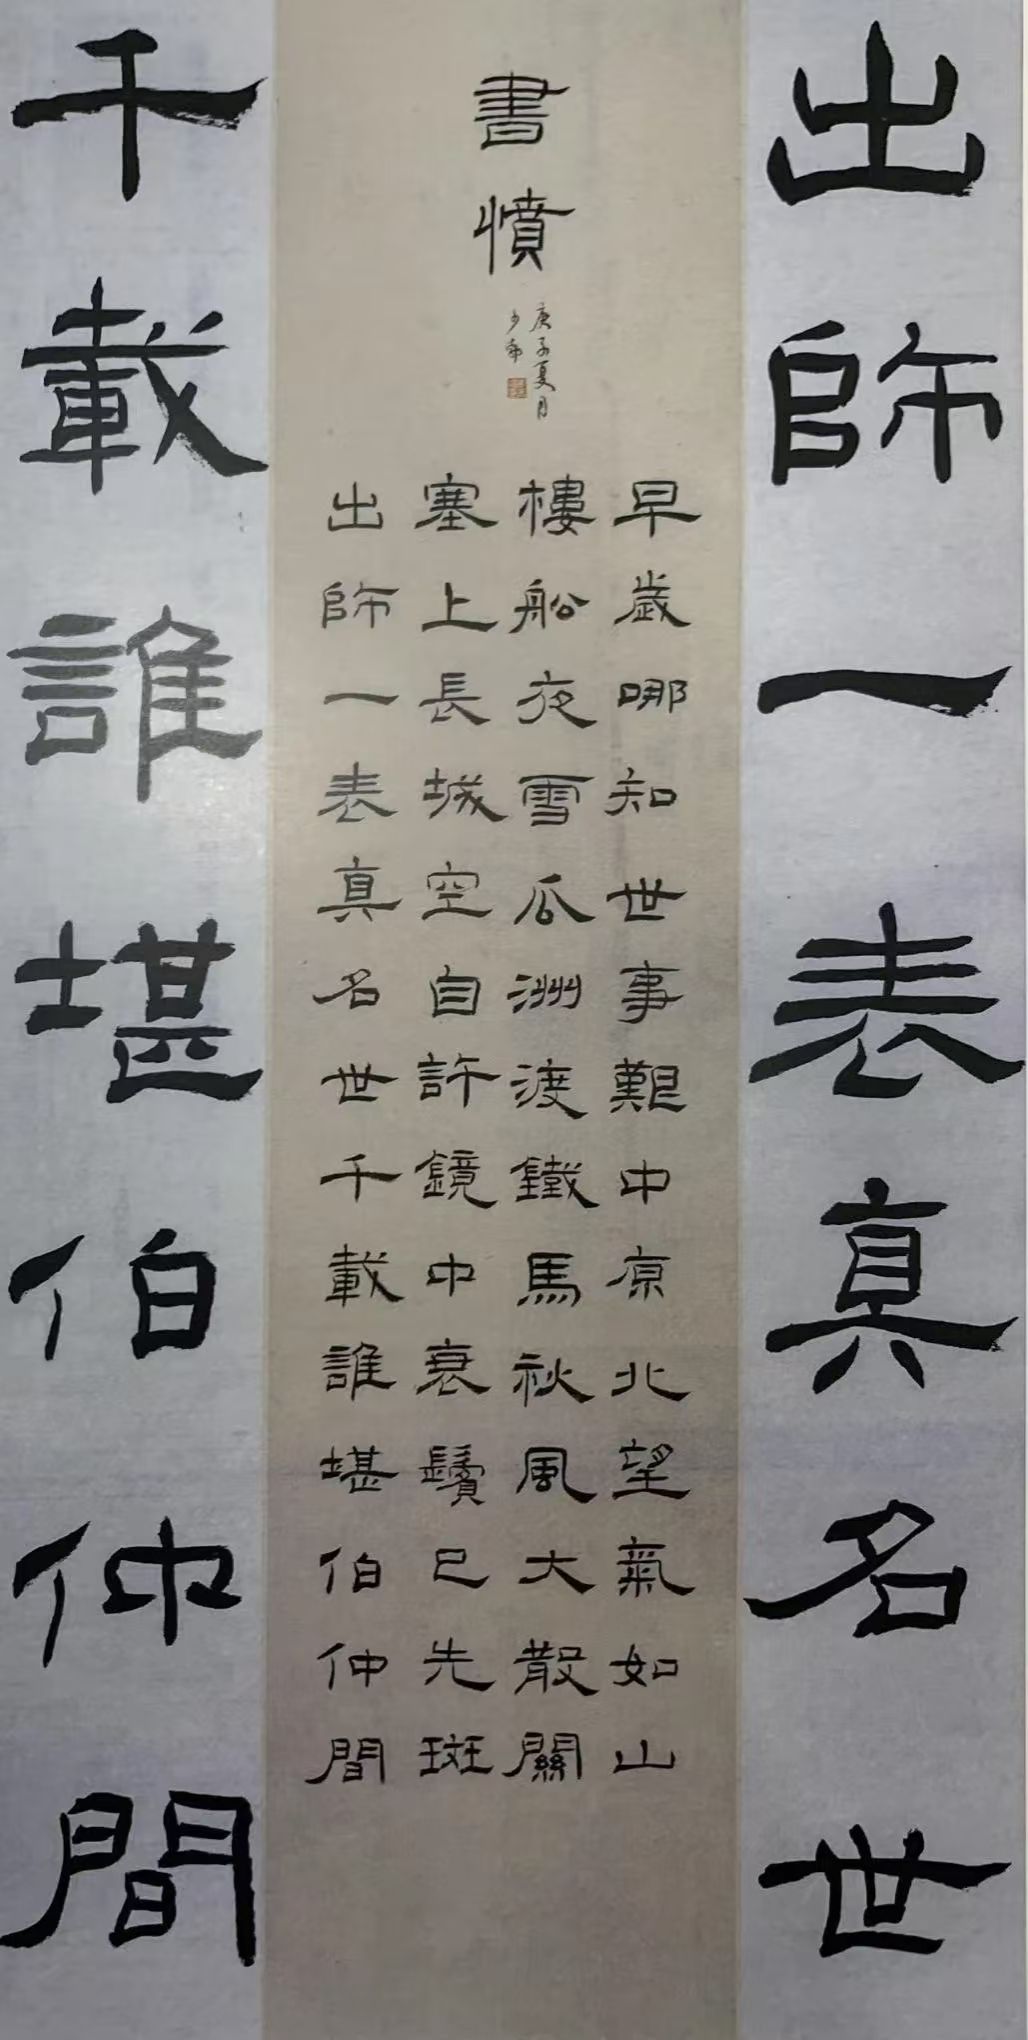 出師一表真名世
書憤
庚子夏月
早歲哪知世事艱中原北望氣如山
樓船夜雪瓜洲渡鐵馬秋風大散關
塞上長城空自許鏡中衰鬢已先斑
出師一表真名世千載誰堪伯仲間
千載誰堪伯仲間